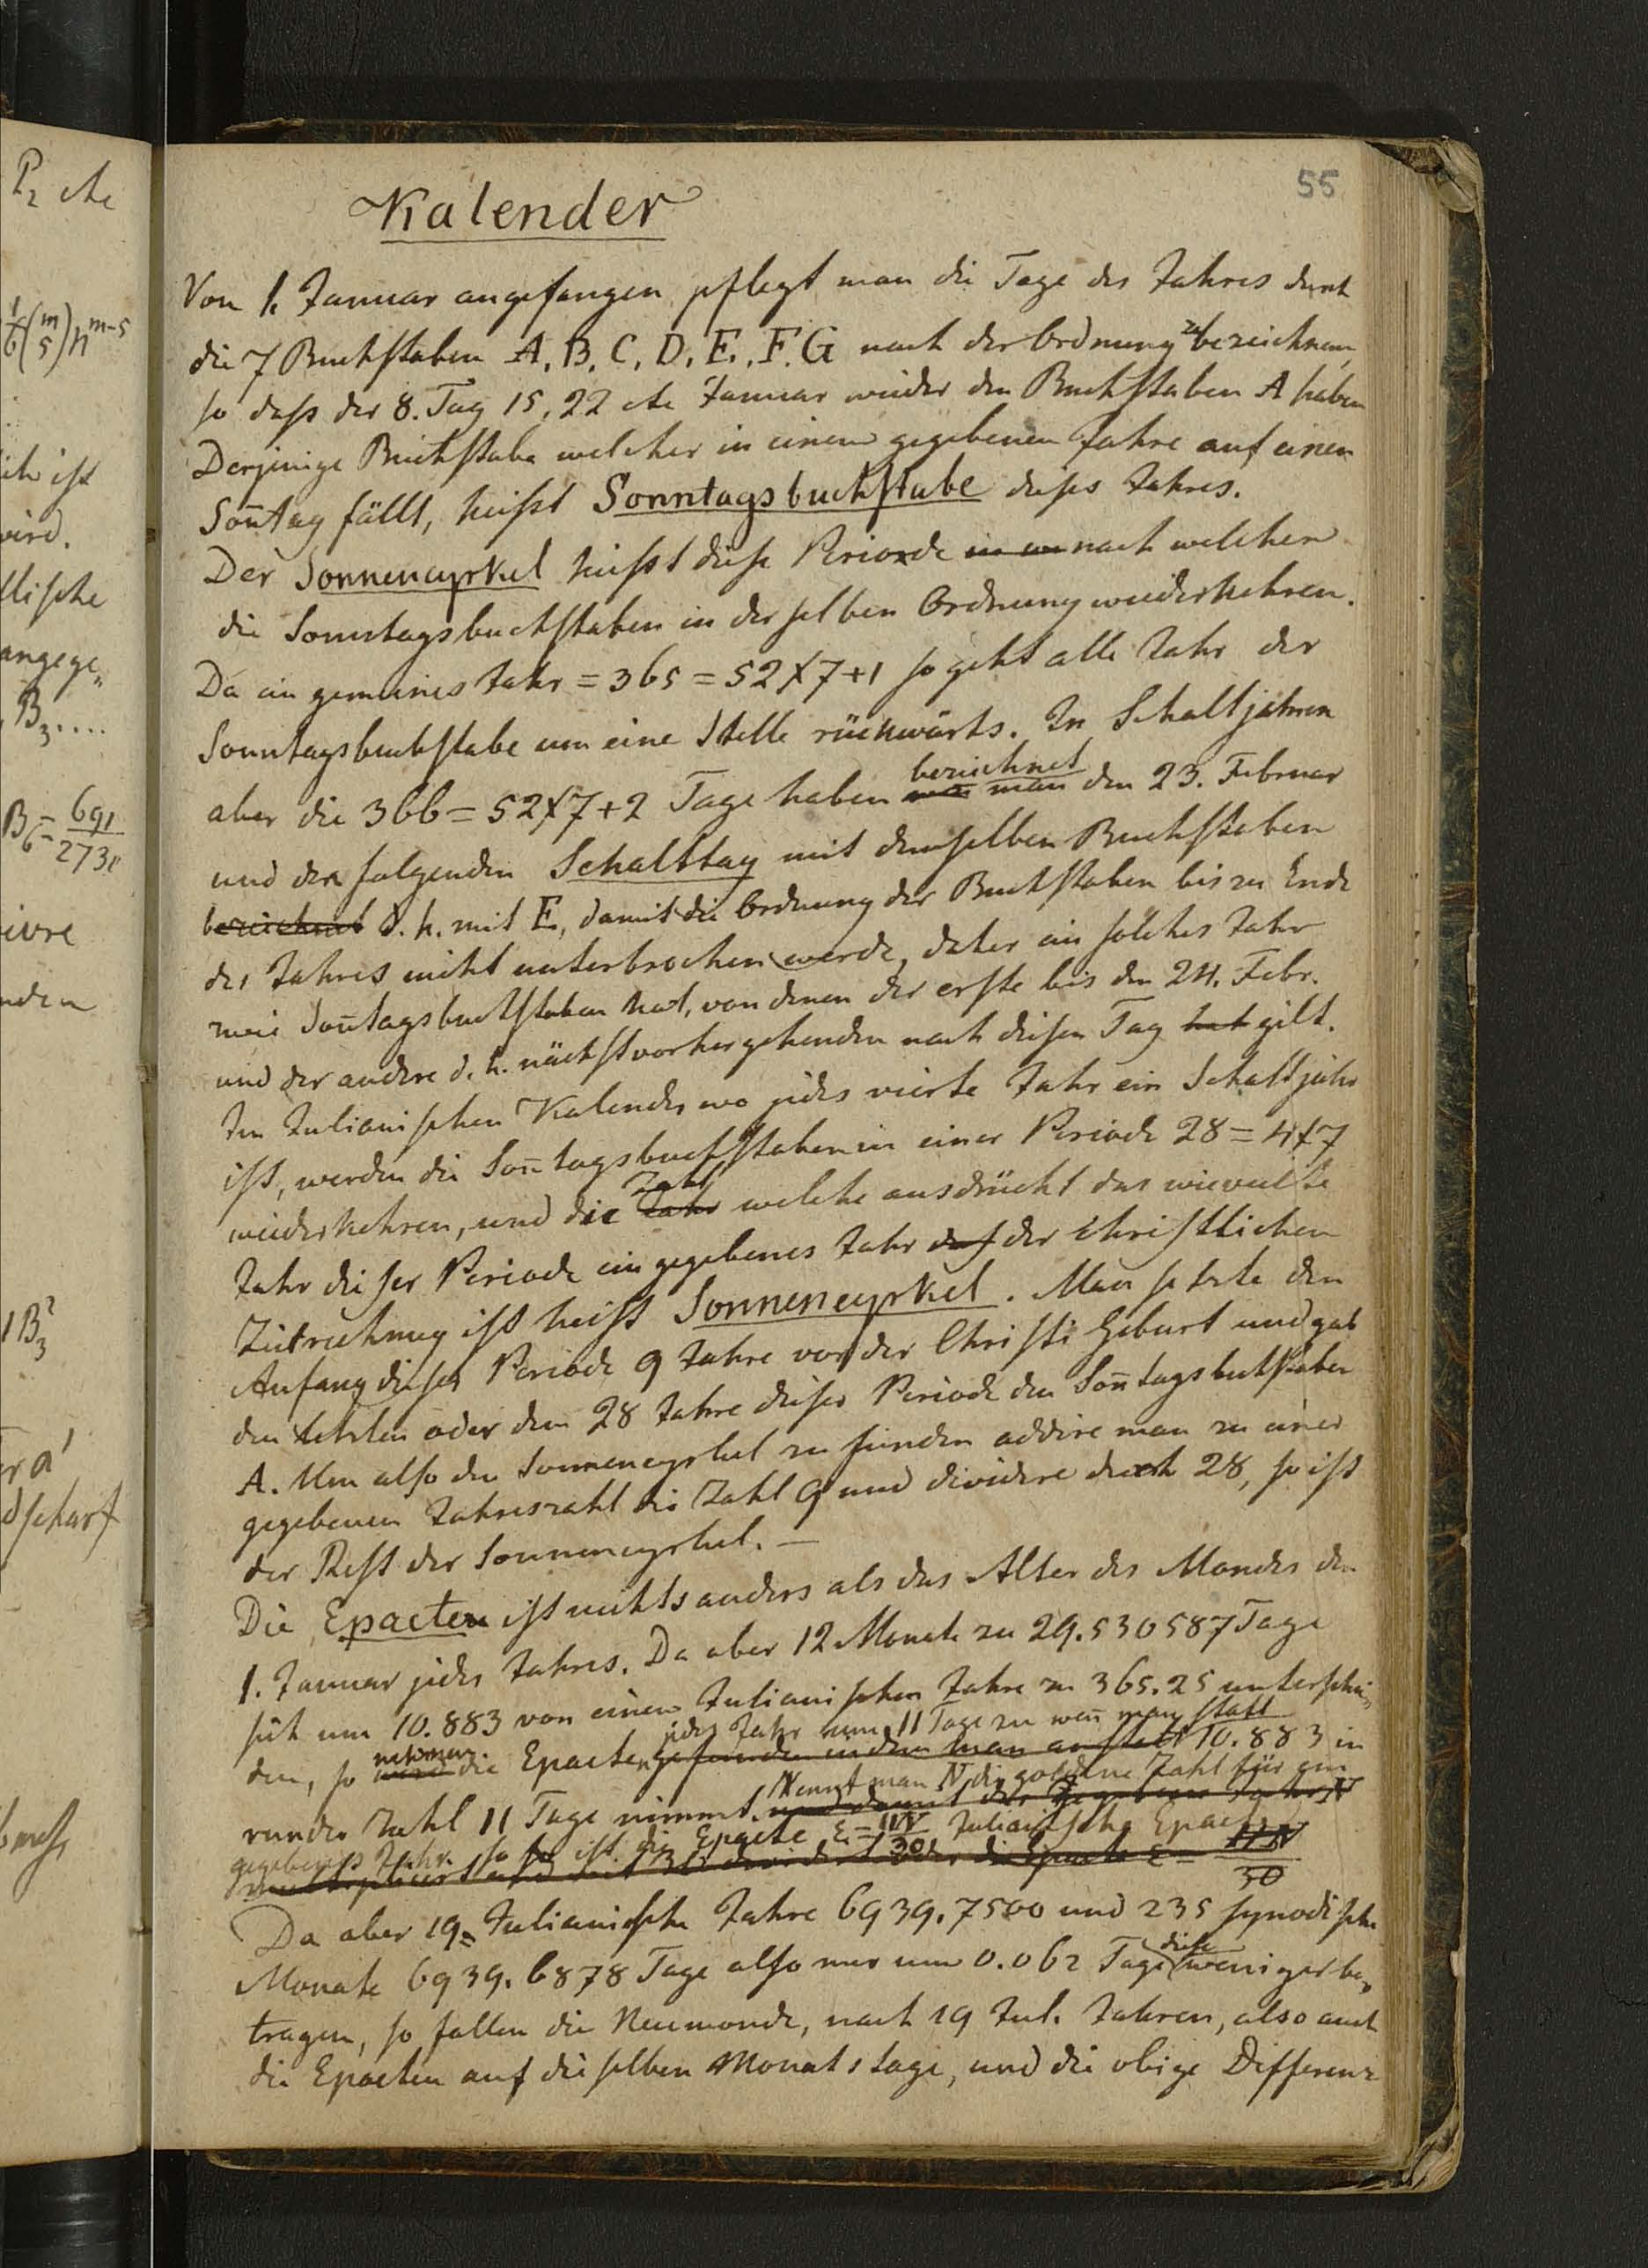 55
Kalender
Von 1. Januar angefangen pflegt man die Tage des Jahres durch
die 7 Buchstaben A. B. C. D. E. F. G nach der Ordnung zu bezeichnen,
so daß der 8. Tag 15, 22 etc Januar wieder den Buchstaben A haben
Derjenige Buchstabe welcher in einem gegebenen Jahre auf einen
Son̄tag fällt, heißt Sonntagsbuchstabe dieses Jahres.
Der Sonnencyrkel heißt diese Periode nach welcher
die Sonntagsbuchstaben in derselben Ordnung wiederkehren.
Da ein gemeines Jahr = 365 = 52 × 7 + 1 so geht alle Jahr der
Sonntagsbuchstabe um eine Stelle rückwärts. In Schaltjahren
aber die 366 = 52 × 7 + 2 Tage haben bezeichnet man den 23. Februar
und den folgenden Schalttag mit demselben Buchstaben
bezeichnet d. h. mit E, damit die Ordnung der Buchstaben bis zu Ende
des Jahres nicht unterbrochen werde, daher ein solches Jahr
zwei Son̄tagsbuchstaben hat, von denen der erste bis den 24. Febr.
und der andere d. h. nächstvorhergehenden nach diesen Tag hat gilt.
Im Julianischen Kalender wo jedes vierte Jahr ein Schaltjahr
ist, werden die Son̄tagsbuchstaben in einer Periode 28 = 4 × 7
wiederkehren, und die Jahr Zahl welche ausdrückt das wievielte
Jahr dieser Periode ein gegebenes Jahr der christlichen
Zeitrechnung ist heißt Sonnencyrkel. Man setzte den
Anfang dieser Periode 9 Jahre vor der Christi Geburt und gab
den letzten oder dem 28 Jahre dieser Periode den Son̄tagsbuchstaben
A. Um also den Sonnencyrkel zu finden addire man zu einer
gegebenen Jahreszahl die Zahl 9 und dividire durch 28, so ist
der Rest der Sonnencyrkel. —
Die Epacten ist nichts anders als das Alter des Mondes den
1. Januar jedes Jahres. Da aber 12 Monate zu 29.530587 Tage
sich um 10.883 von einem Julianischen Jahre zu 365.25 unterschei„
den, so nehmen die Epacten jedes Jahr um 11 Tage zu wen̄ man statt 10.883 in
runder Zahl 11 Tage nimmt. Nennt man N die goldene Zahl für ein
gegebenes Jahr so ist die Epacte ε = 11N/30 Julianische Epacte
Da aber 19 Julianische Jahre 6939.7500 und 235 synodische
Monate 6939.6878 Tage also nur um 0.062 Tage diese weniger be„
tragen, so fallen die Neumonde, nach 19 Jul. Jahren, also auch
die Epacten auf dieselben Monatstage, und die obige Differenz
P₂ etc
ich ist
wird.
angege„
B₃....
B₆ = 691/2730
B₃²